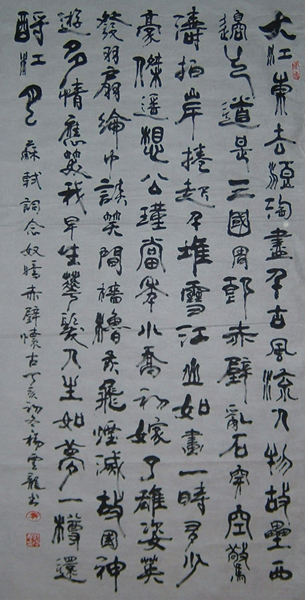 大江東去浪淘盡千古風流人物故壘西
邊人道是三國周郎赤壁亂石穿空驚
濤拍岸捲起千堆雪江山如畫一時多少
豪傑遥想公瑾當年小喬初嫁了雄姿英
發羽扇綸巾談笑間檣櫓灰飛煙滅故國神
遊多情應笑我早生華髮人生如夢一樽還
酹江月 蘇軾詞念奴嬌赤壁懷古丁亥初冬楊雲龍書